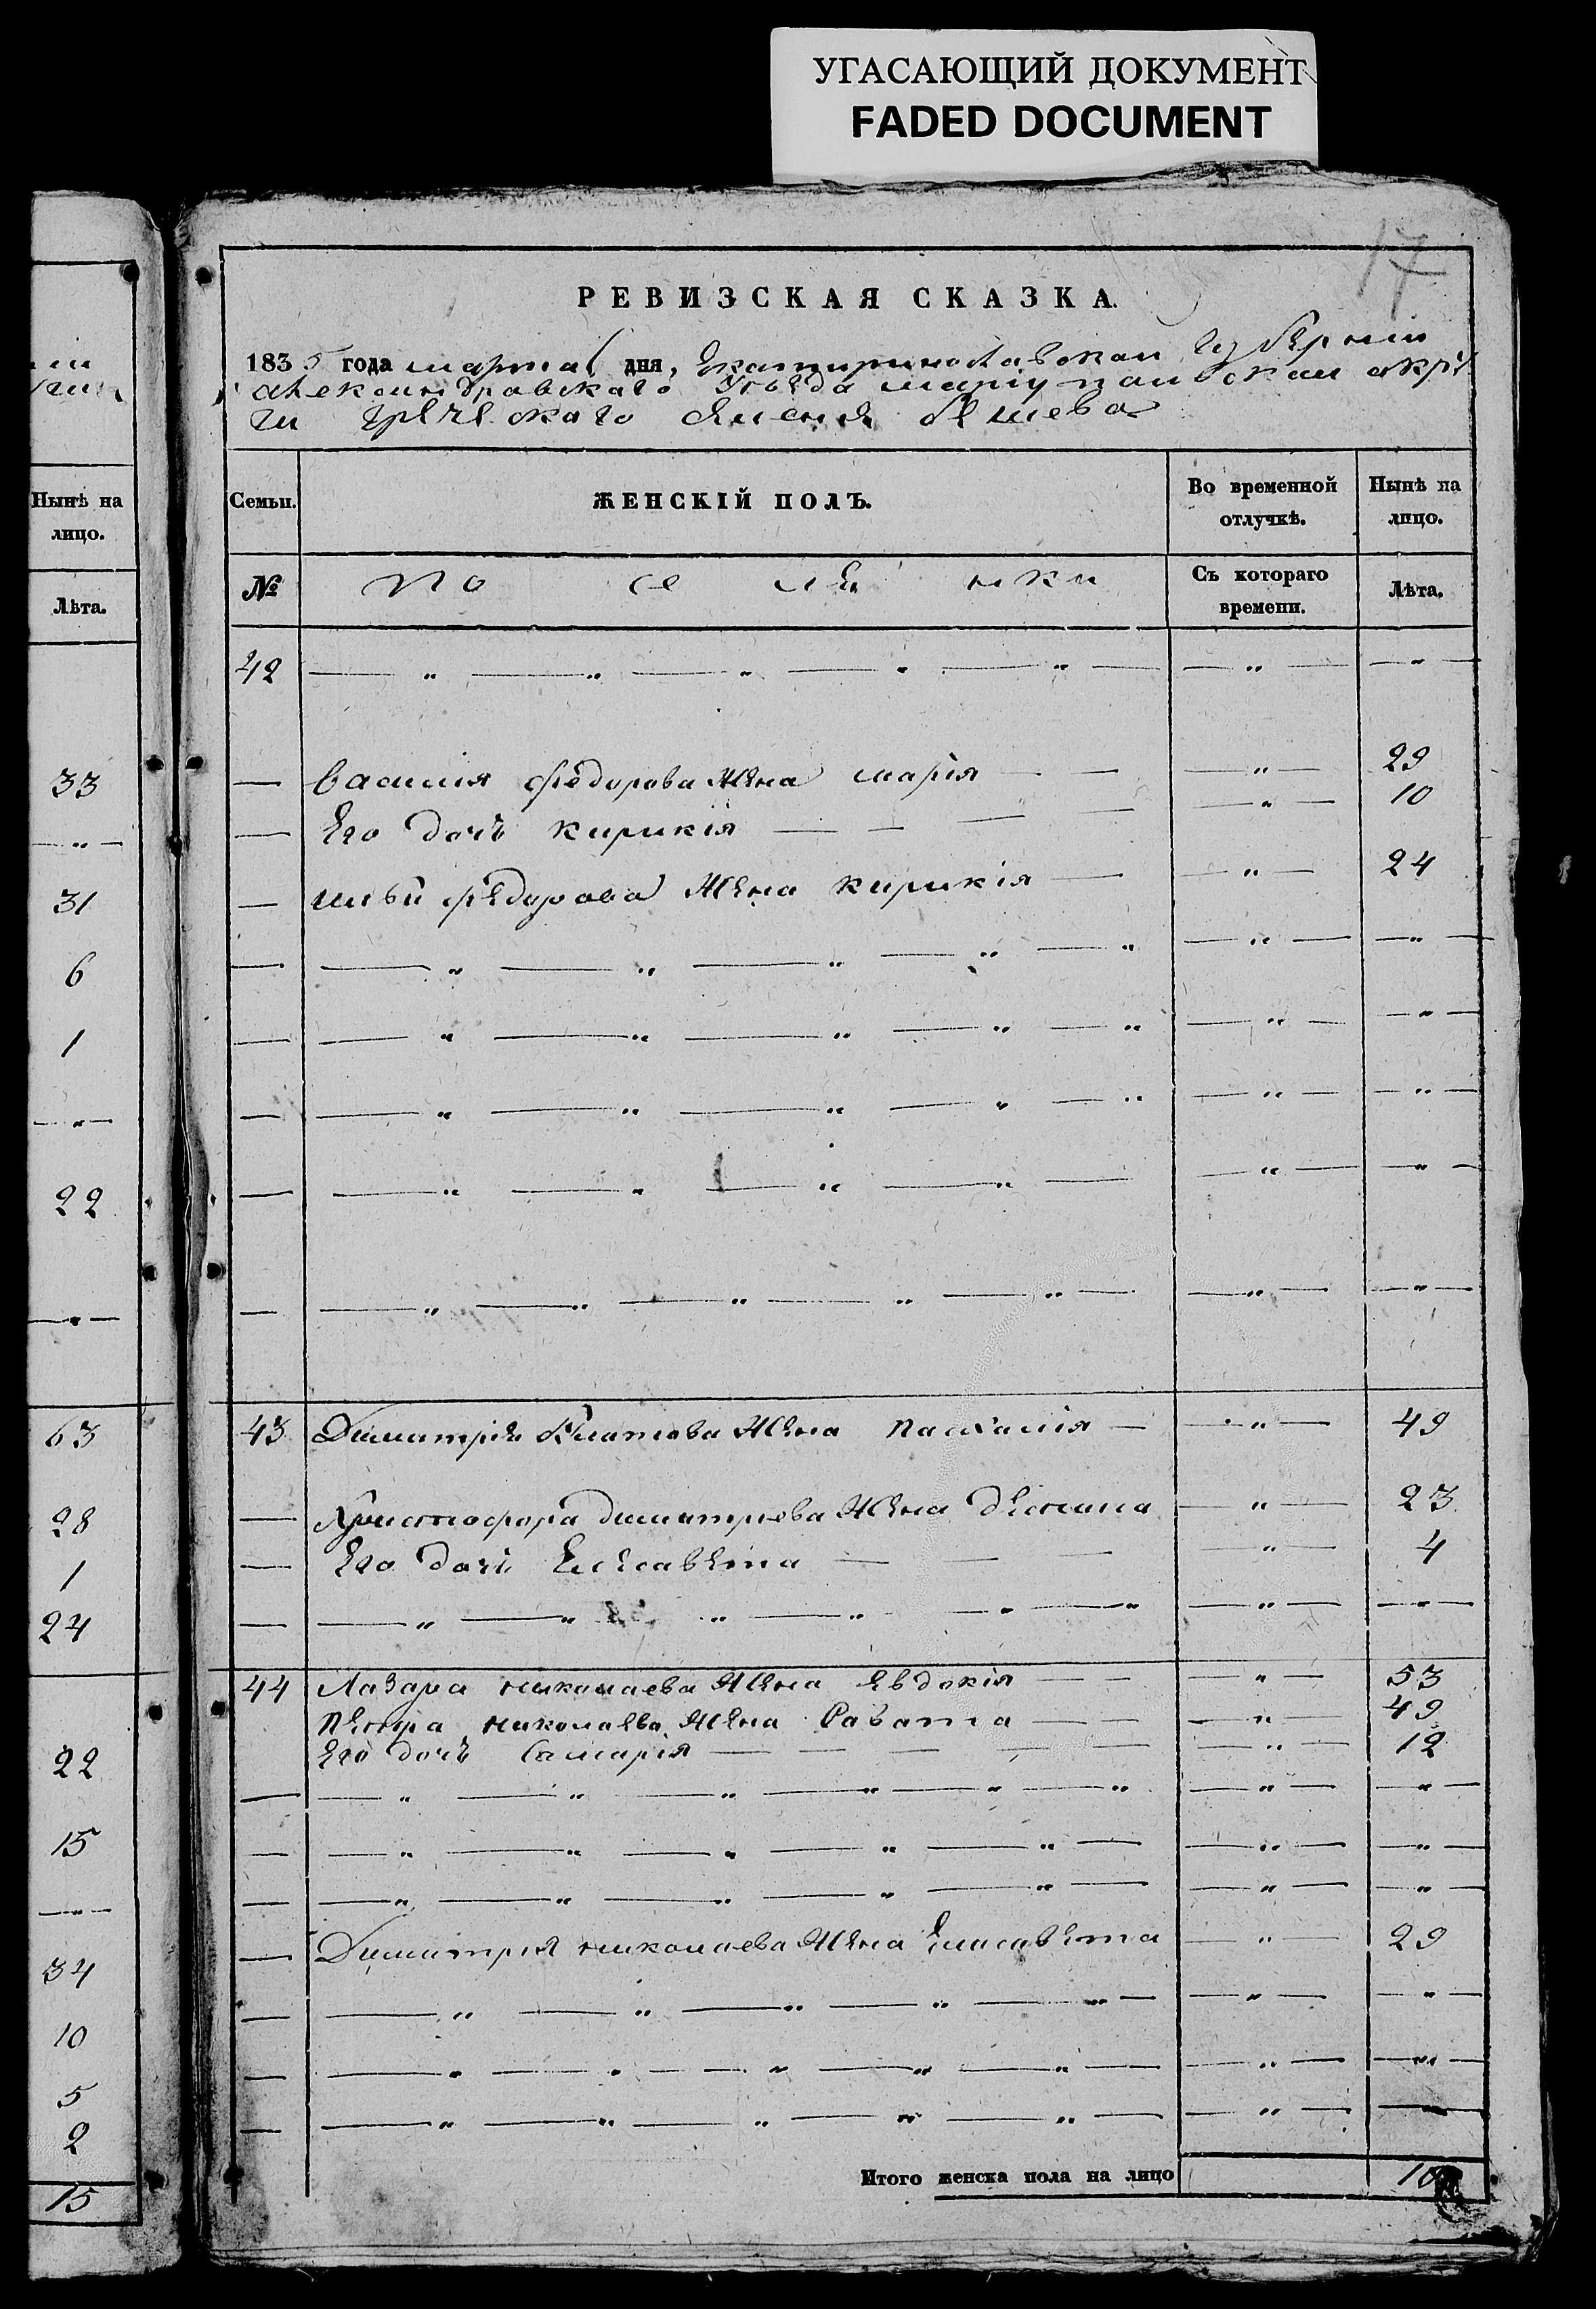 УГАСАЮЩИЙ ДОКУМЕНТ
FADED DOCUMENT
17
РЕВИЗСКАЯ СКАЗКА.
1835 года марта дня, Екатиринославской Губерніи
александравскаго Уезда маріупольской окру
ги греческаго селеня бешева
Нынѣ на лицо.
Лѣта.
33
31
6
1
22
63
28
1
24
22
15
34
10
5
2
15
Семьи.
ЖЕНСКІЙ ПОЛЪ.
Во временной отлучкѣ.
Нынѣ на лицо.
№
По се ля нки
Съ котораго времени.
Лѣта.
42
Василия федорова жена марія 29
Его дочь кирикія 10
федорова жена кирикія 24
43 Димитрія жена 49
Христофора димитриева жена 23
Его дочь Елесавета 4
44 Лазара николаева жена Евдокія 53
Петра николаева жена 49
Его дочь 12
Димитрия николаева жена Елисавета 29
Итого женска пола на лицо 10